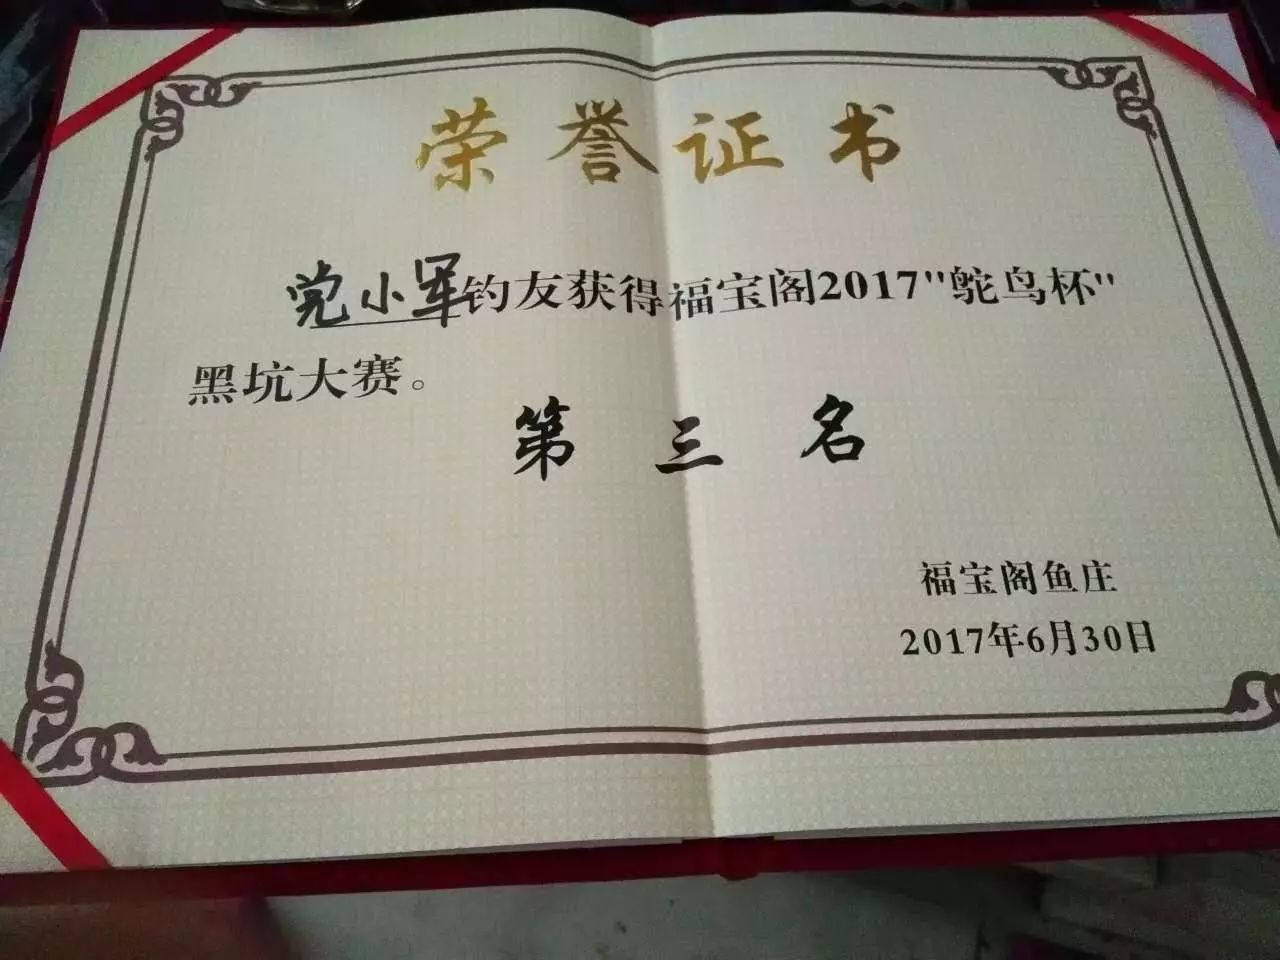 荣誉证书
党小军钓友获得福宝阁2017"鸵鸟杯"
黑坑大赛。
第三名
福宝阁鱼庄
2017年6月30日